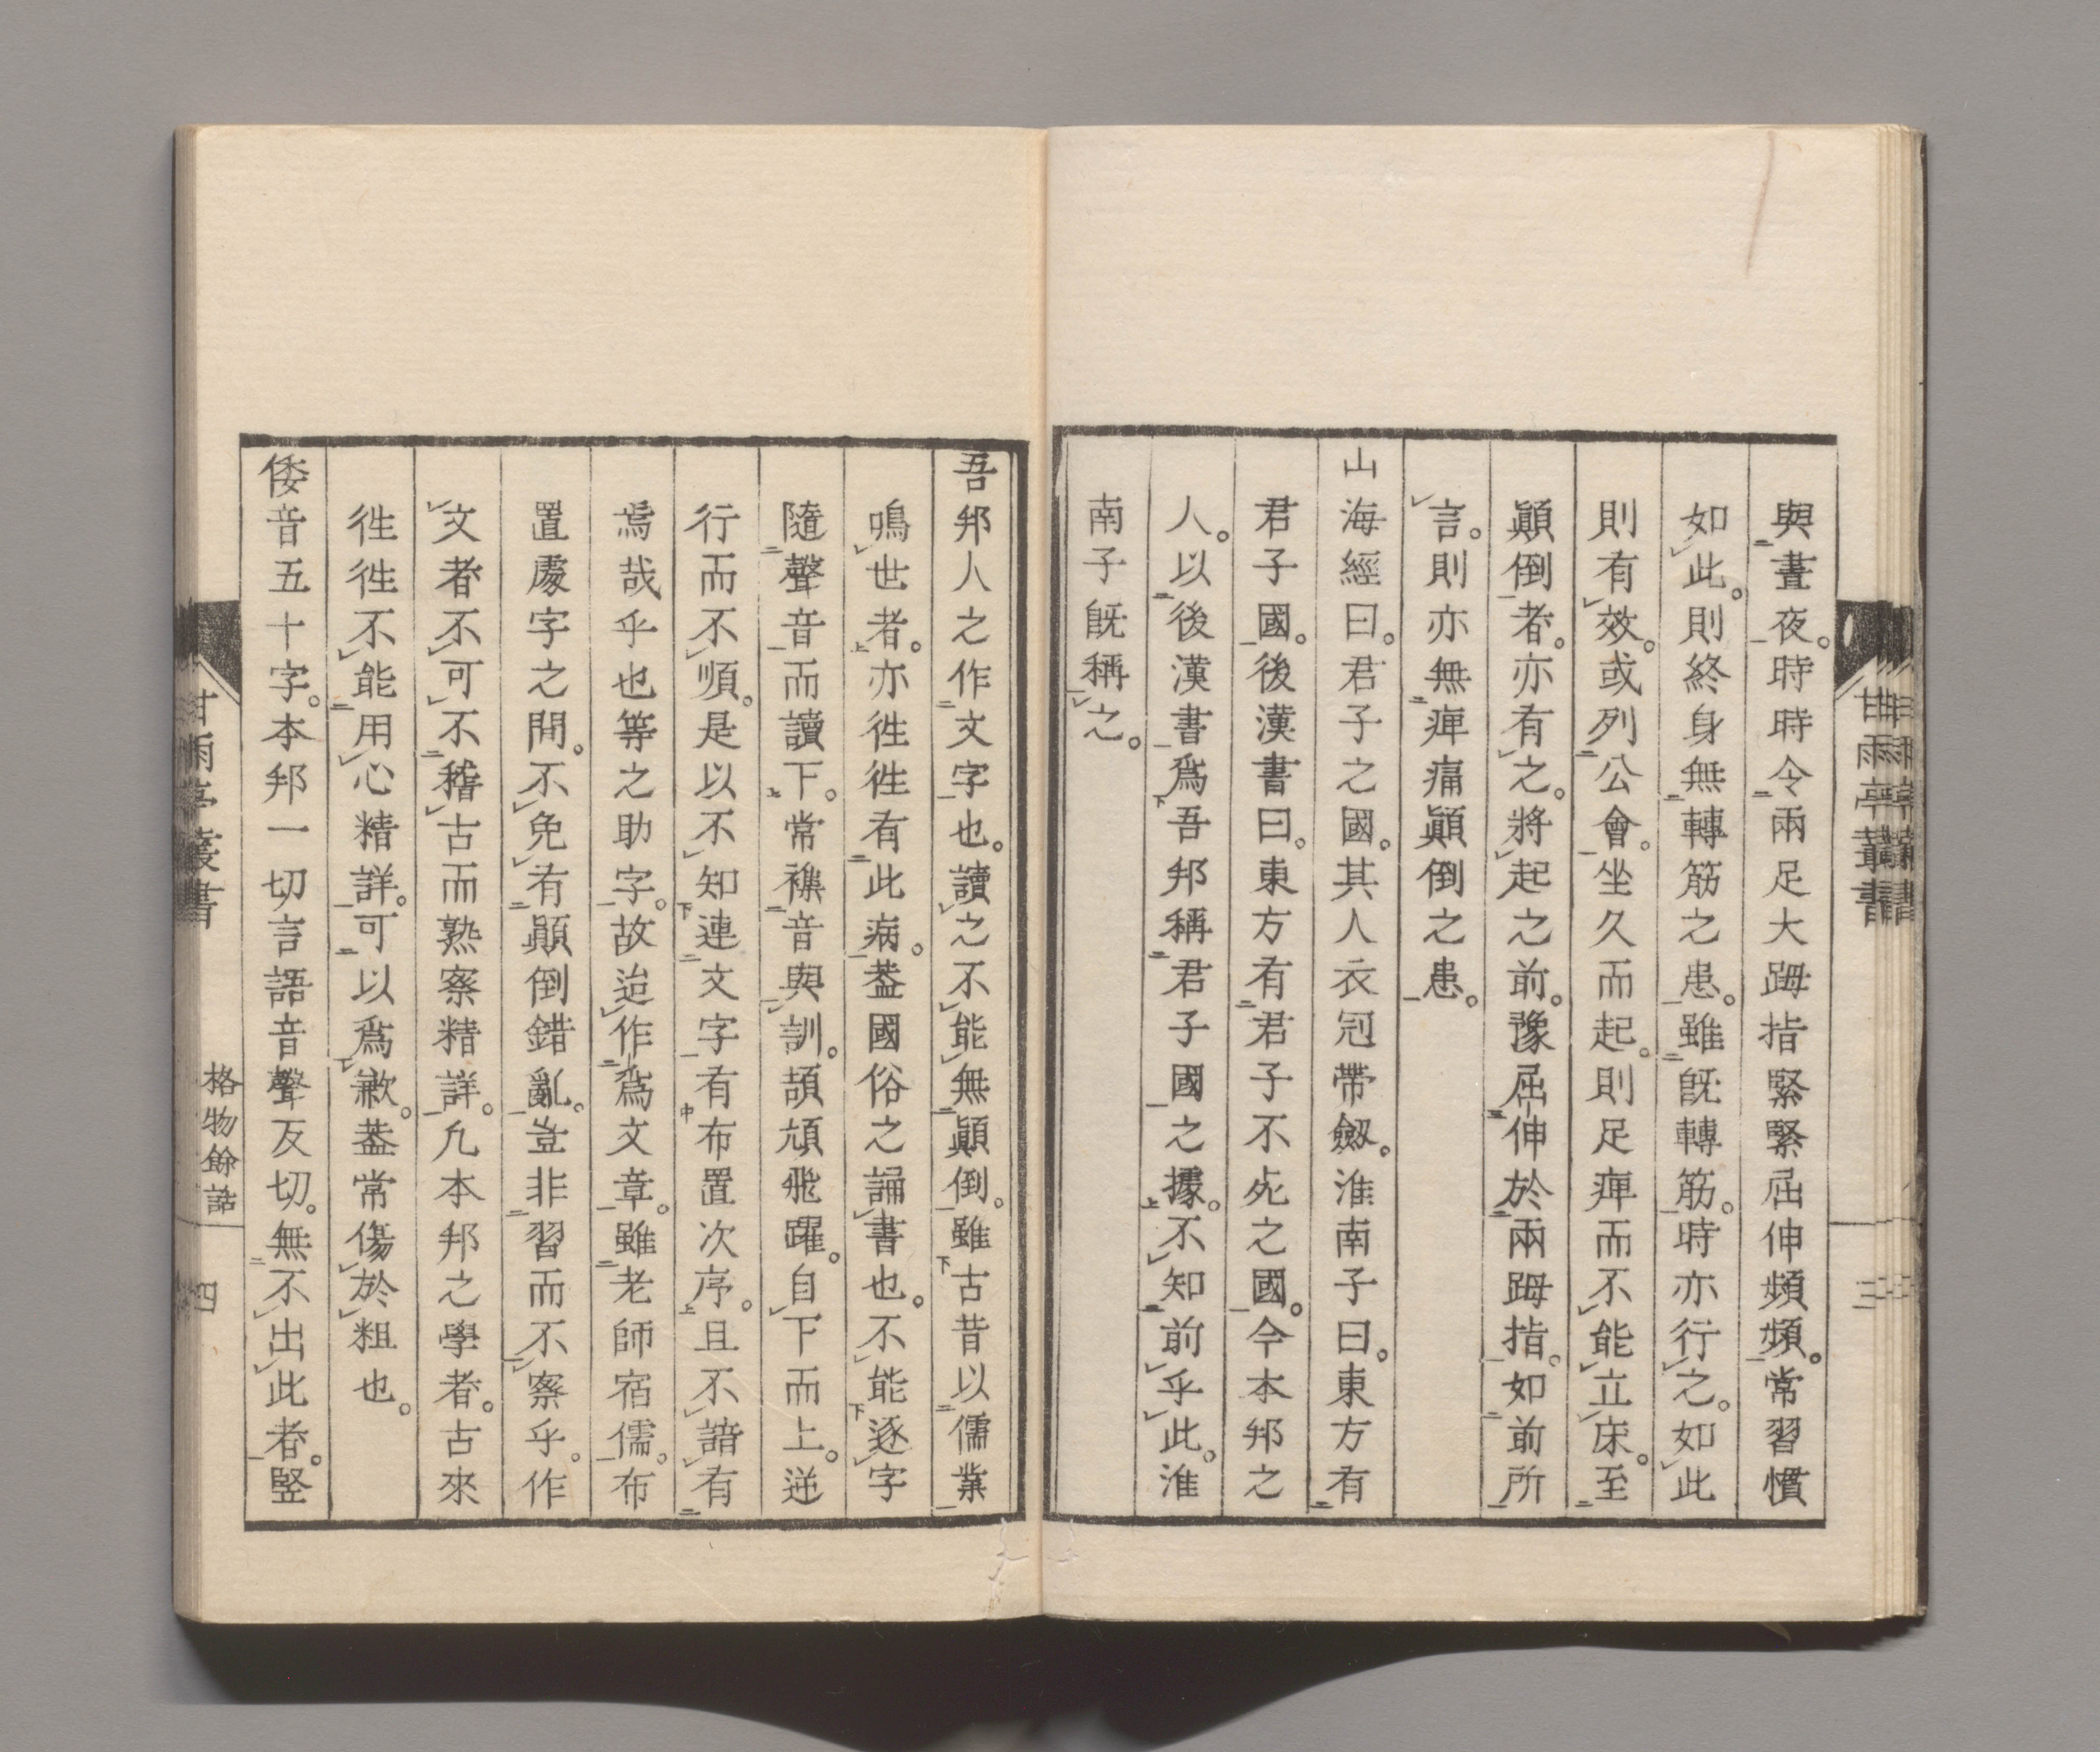 與晝夜。時時令兩足大踇指緊緊屈伸頻頻。常習慣
如此。則終身無轉筋之患。雖旣轉筋。時亦行之。如此
則有效。或列公會。坐久而起。則足痺而不能立床。至
顚倒者。亦有之。將起之前。豫屈伸於兩踇指。如前所
言。則亦無痺痛顚倒之患。
山海經曰。君子之國。其人衣冠帶劔。淮南子曰。東方有
君子國。後漢書曰。東方有君子不死之國。今本邦之
人。以後漢書爲吾邦稱君子國之據。不知前乎此。淮
南子旣稱之。
甘雨亭叢書
三
吾邦人之作文字也。讀之不能無顚倒。雖古昔以儒業
鳴世者。亦徃徃有此病。葢國俗之誦書也。不能逐字
隨聲音而讀下。常襍音與訓。頡頏飛躍。自下而上。逆
行而不順。是以不知連文字有布置次序。且不諳有
焉哉乎也等之助字。故迨作爲文章。雖老師宿儒。布
置處字之間。不免有顚倒錯亂。豈非習而不察乎。作
文者不可不稽古而熟察精詳。凢本邦之學者。古來
徃徃不能用心精詳。可以爲歉。葢常傷於粗也。
倭音五十字。本邦一切言語音聲反切。無不出此者。竪
甘雨亭叢書
格物餘話
四